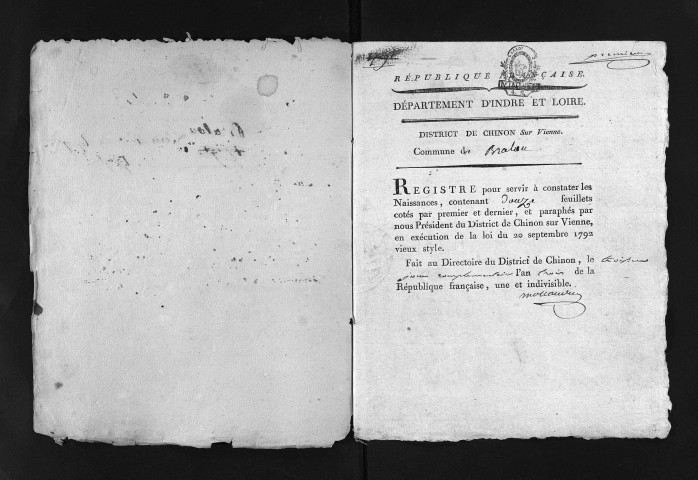 premier
RÉPUBLIQUE FRANÇAISE.
DÉPARTEMENT D'INDRE ET LOIRE.
DISTRICT DE CHINON Sur Vienne.
Commune de Bralou
REGISTRE pour servir à constater les
Naissances, contenant douze feuillets
cotés par premier et dernier, et paraphés par
nous Président du District de Chinon sur Vienne,
en exécution de la loi du 20 septembre 1792
vieux style.
Fait au Directoire du District de Chinon, le troisième
jour complementaire l'an trois de la
République française, une et indivisible.